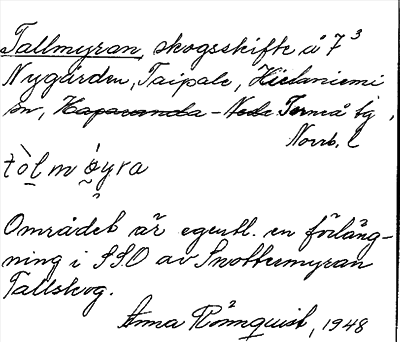 Tallmyran, skogsskifte å 7³
Nygården, Taipale, Hietaniemi
sn, Haparanda - Nede Torneå tg,
Norrb. l
tòlmóyra
Området är egentl. en förläng-
ning i SSO av Snottermyran
Tallskog.
Anna Rönnquist, 1948